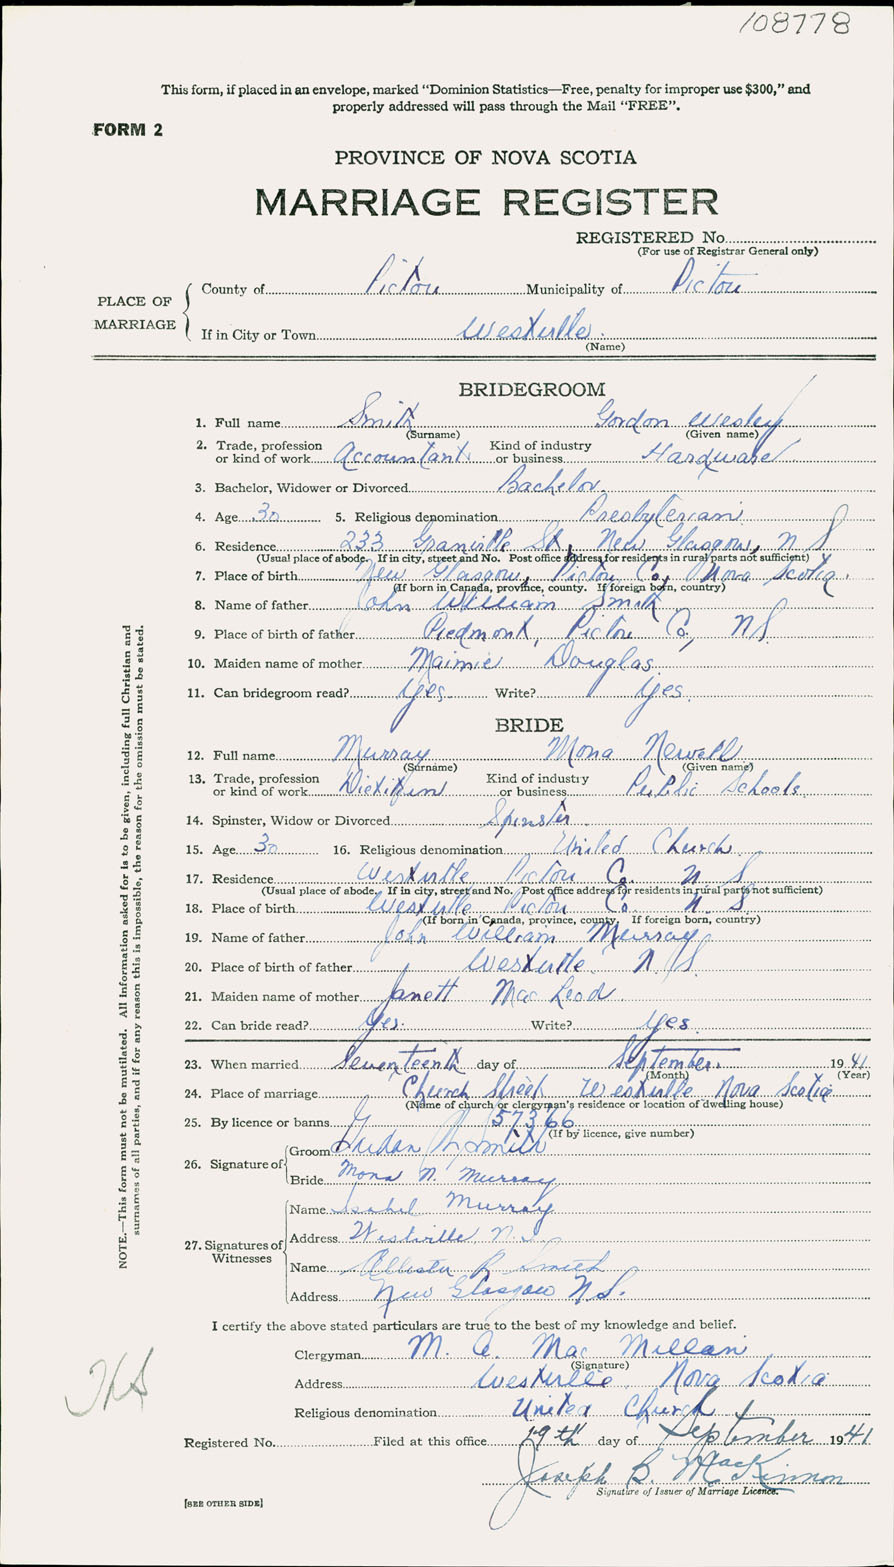 108778
This form, if placed in an envelope, marked “Dominion Statistics—Free, penalty for improper use $300,” and
properly addressed will pass through the Mail “FREE”.
FORM 2
PROVINCE OF NOVA SCOTIA
MARRIAGE REGISTER
REGISTERED No.
(For use of Registrar General only)
PLACE OF MARRIAGE
County of Pictou Municipality of Pictou
If in City or Town Westville.
(Name)
BRIDEGROOM
1. Full name Smith Gordon Wesley
(Surname) (Given name)
2. Trade, profession or kind of work Accountant Kind of industry or business Hardware
3. Bachelor, Widower or Divorced Bachelor.
4. Age 30 5. Religious denomination Presbyterian
6. Residence 233 Granville St, New Glasgow, N S
(Usual place of abode. If in city, street and No. Post office address for residents in rural parts not sufficient)
7. Place of birth New Glasgow, Pictou Co., Nova Scotia.
(If born in Canada, province, county. If foreign born, country)
8. Name of father John William Smith
9. Place of birth of father Piedmont, Pictou Co, N S
10. Maiden name of mother Maimie Douglas.
11. Can bridegroom read? Yes. Write? Yes.
BRIDE
12. Full name Murray Mona Newell
(Surname) (Given name)
13. Trade, profession or kind of work Kind of industry or business Public Schools.
14. Spinster, Widow or Divorced Spinster.
15. Age 30 16. Religious denomination United Church.
17. Residence Westville Pictou Co. N S
(Usual place of abode. If in city, street and No. Post office address for residents in rural parts not sufficient)
18. Place of birth Westville Pictou Co. N. S.
(If born in Canada, province, county. If foreign born, country)
19. Name of father John William Murray
20. Place of birth of father Westville. N. S.
21. Maiden name of mother Janett MacLeod.
22. Can bride read? Yes. Write? Yes.
23. When married Seventeenth day of September. 1941
(Month) (Year)
24. Place of marriage Church Street Westville Nova Scotia
(Name of church or clergyman's residence or location of dwelling house)
25. By licence or banns 57366
(If by licence, give number)
26. Signature of
Groom Smith
Bride Mona N. Murray
27. Signatures of Witnesses
Name Isabel Murray
Address Westville N. S.
Name Smith
Address New Glasgow N.S.
I certify the above stated particulars are true to the best of my knowledge and belief.
Clergyman M. A. MacMillan
(Signature)
Address Westville, Nova Scotia
Religious denomination United Church
Registered No. Filed at this office 19th day of September 1941
Joseph B. MacKinnon
Signature of Issuer of Marriage Licence.
[SEE OTHER SIDE]
NOTE.—This form must not be mutilated. All Information asked for is to be given, including full Christian and
surnames of all parties, and if for any reason this is impossible, the reason for the omission must be stated.